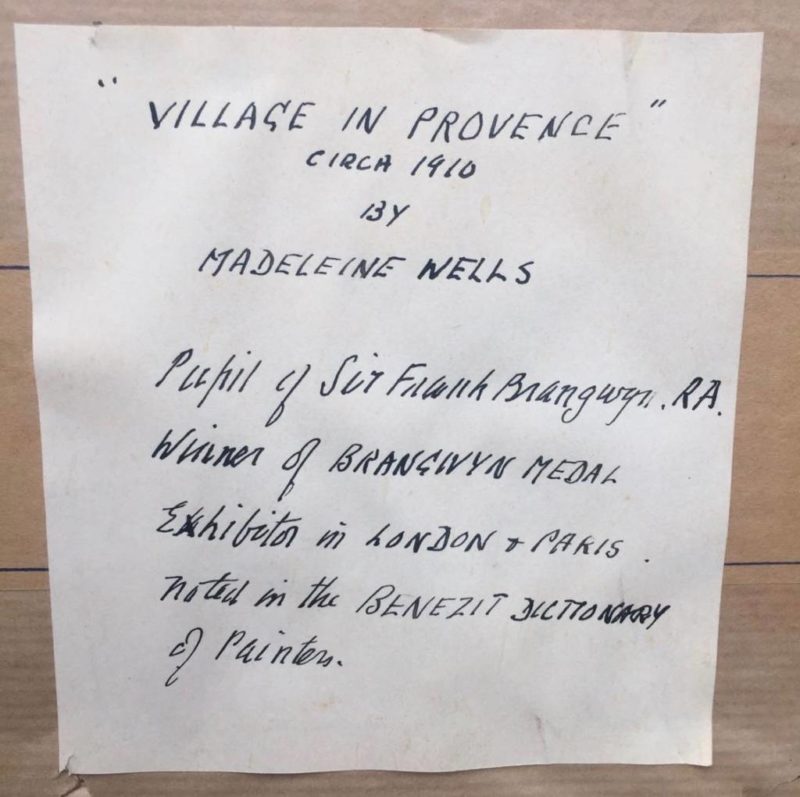 "VILLAGE IN PROVENCE"
CIRCA 1910
BY
MADELEINE WELLS
Pupil of Sir Frank Brangwyn. RA.
Winner of BRANGWYN MEDAL
Exhibitor in LONDON & PARIS.
noted in the BENEZIT DICTIONARY
of Painters.